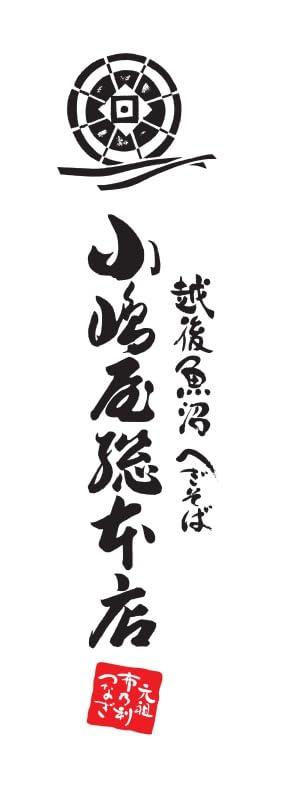 越後魚沼へぎそば
小嶋屋総本店
元祖
布乃利
つなぎ